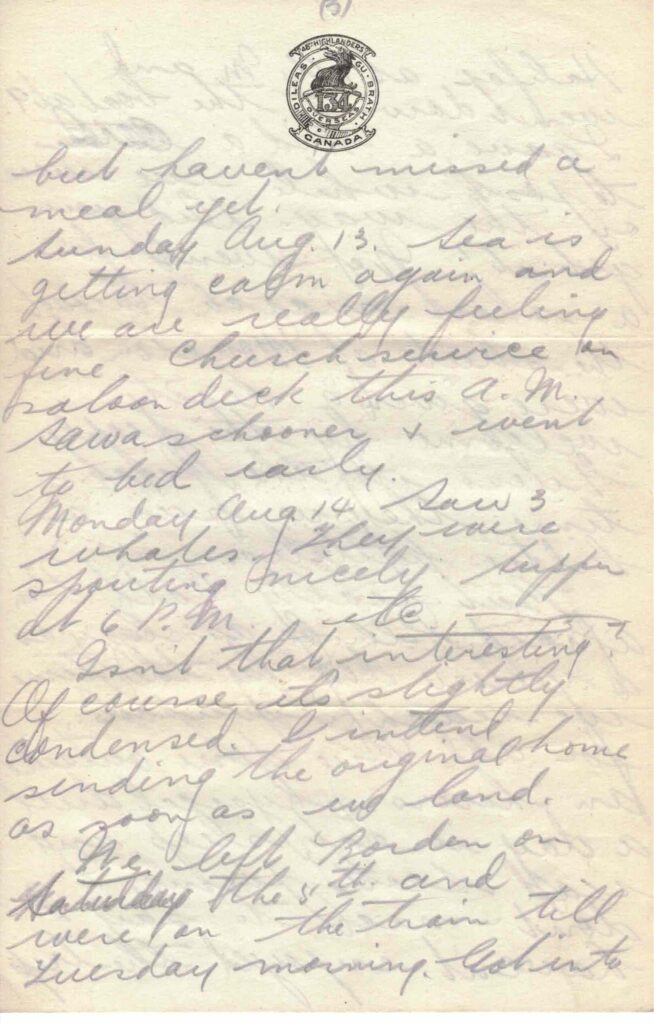 (5)
48TH HIGHLANDERS
DILEAS GU BRATH
134
OVERSEAS
CANADA
but haven't missed a
meal yet.
Sunday Aug. 13. Sea is
getting calm again and
we are really feeling
fine Church service on
saloon deck this A.M.
Saw a schooner & went
to bed early.
Monday Aug 14 Saw 3
whales. They were
spouting nicely. Supper
at 6 P.M. etc.
Isn't that interesting?
Of course its slightly
condensed. I intend
sending the original home
as soon as we land.
We left Borden on
Saturday the 5th. and
were on the train till
Tuesday morning. Got into